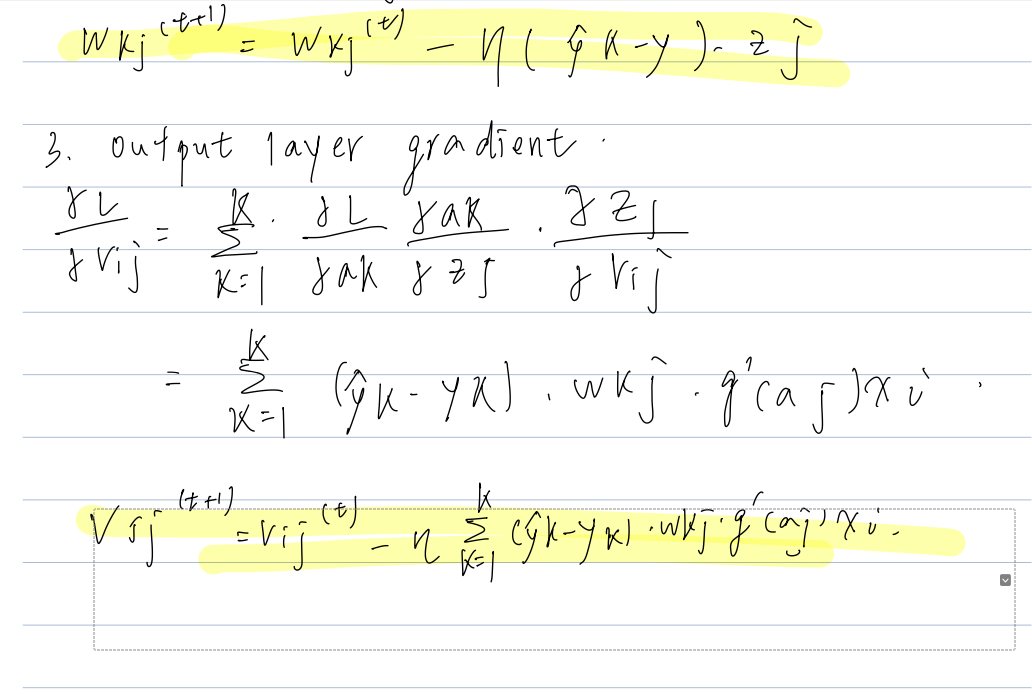 wkj^(t+1) = wkj^(t) - η(ŷk-y)·zj
3. output layer gradient.
∂L/∂vij = Σ_{k=1}^{K} · ∂L/∂ak ∂ak/∂zj · ∂zj/∂vij
= Σ_{k=1}^{K} (ŷk-yk)·wkj·g'(aj)xi.
vij^(t+1) = vij^(t) - η Σ_{k=1}^{K} (ŷk-yk)·wkj·g'(aj)xi.